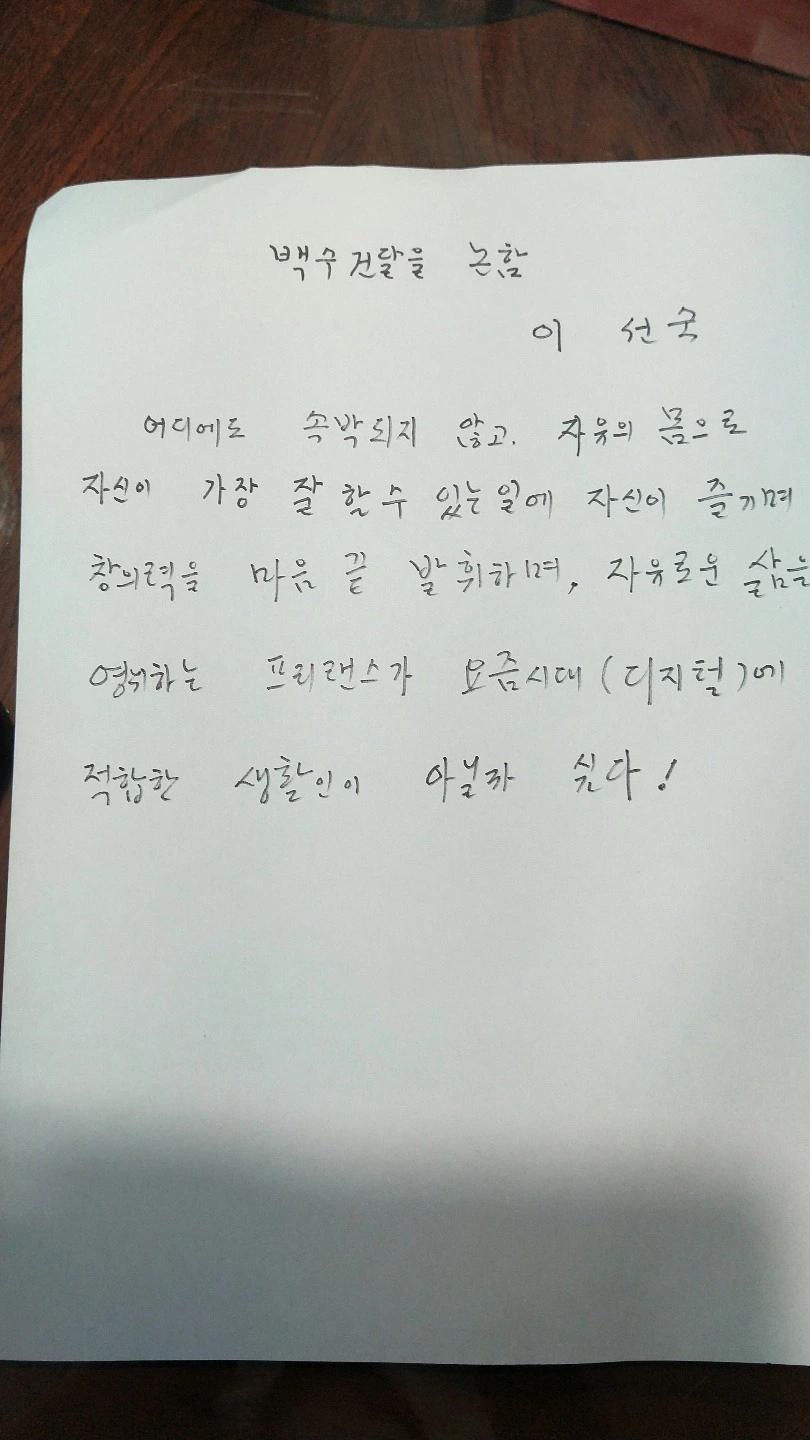 백수건달을 논함
이 선국
어디에도 속박되지 않고. 자유의 몸으로
자신이 가장 잘 할 수 있는 일에 자신이 즐기며
창의력을 마음 끝 발휘하며, 자유로운 삶을
영위하는 프리랜스가 요즘시대 (디지털)에
적합한 생활인이 아닐까 싶다!